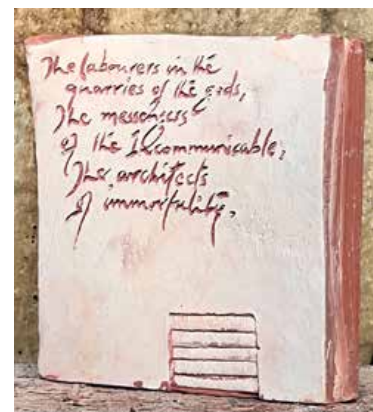 The labourers in the
quarries of the gods,
The messengers
of the Incommunicable,
The architects
of immortality.